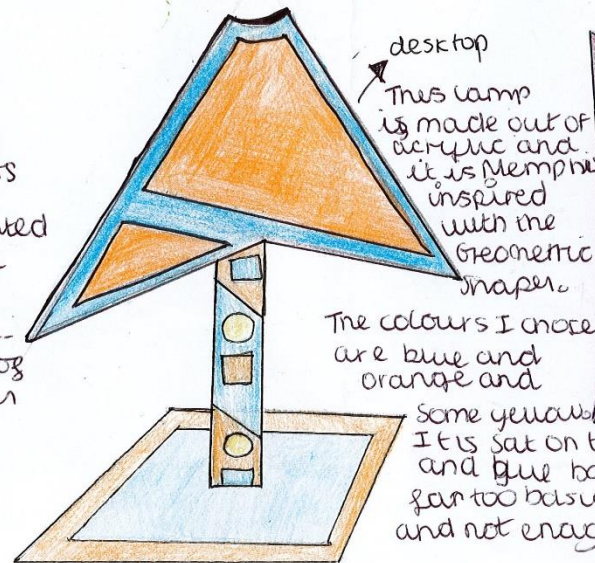 desktop
This lamp
is made out of
acrylic and
it is Memphis
inspired
with the
Geometric
shapes.
The colours I chose
are blue and
orange and
Some yellow
It is sat on t
and blue ba
far too basi
and not enoug
s
ted
of